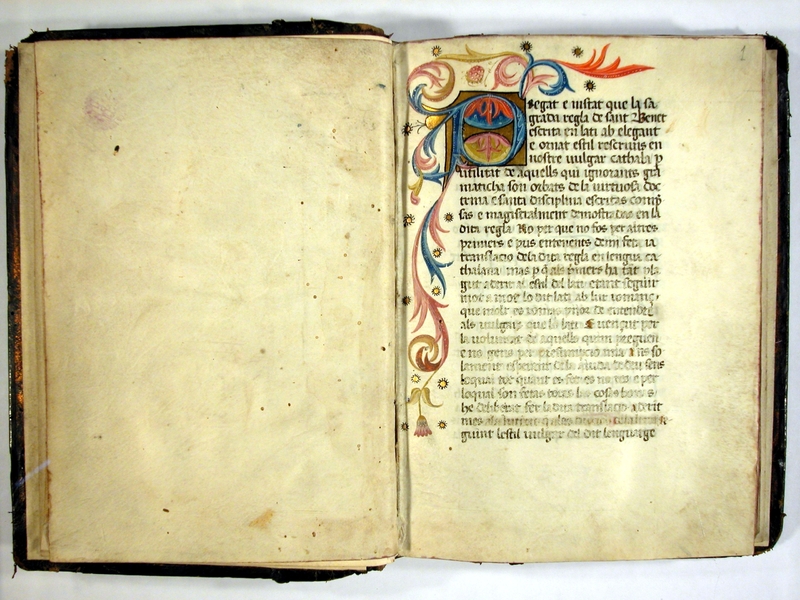 1
Pregat e instat que la sa
grada regla de sant Benet
escrita en lati ab elegant
e ornat estil rescrivis en
nostre vulgar cathala p
utilitat de aquells qui ignorants gra
maticha son orbats de la virtuosa doc
trina e santa disciplina escritas comp
sas e magistralment demostradas en la
dita regla No per que no fos per altres
primers e pus entenents de mi feta ia
translacio de la dita regla en lengua ca
thalana mas p q̄ als primers ha tāt pla
gut aderir al estil del lati
lo dit lati ab lur romanç
que molt es
als vulgars que lo lati E vençut per
la voluntat de aquells quim preguen
e no gens per presumpcio mia
lament esperant de la aiuda de deu sens
loqual tot quant es fet es no res e per
loqual son fetas totas las cosas
he deliberat fer la dita translacio aderit
me
guint lestil vulgar del dit lenguatge